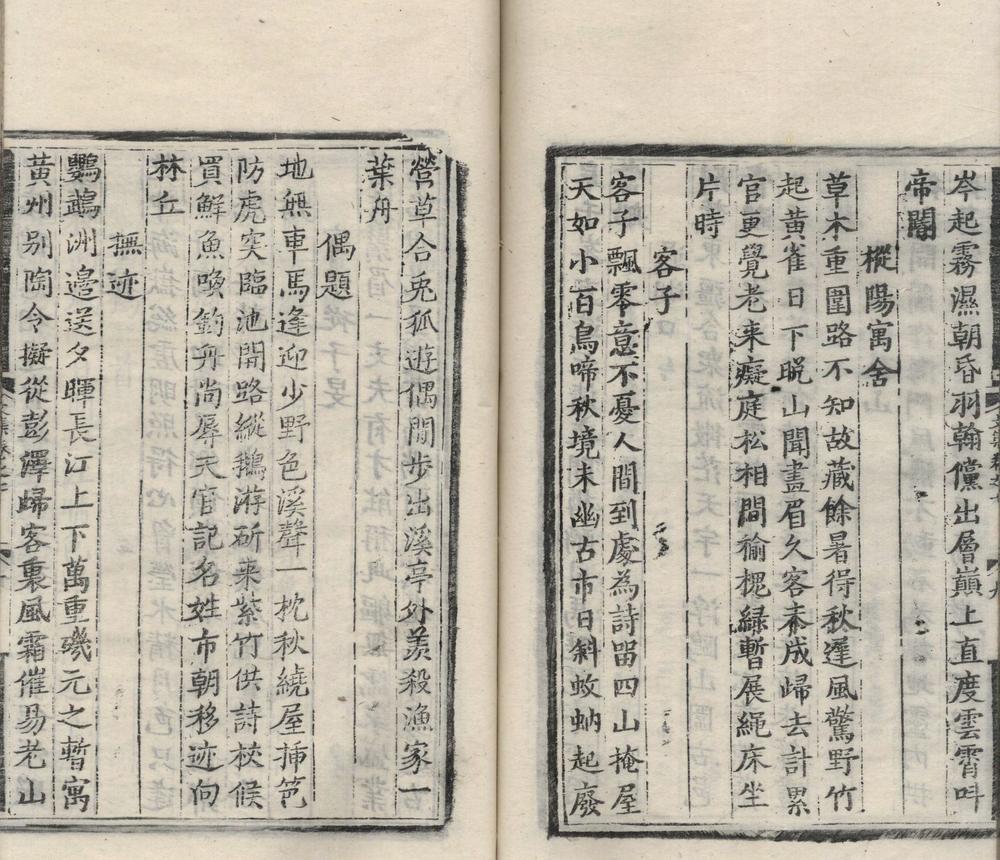 岑起霧濕朝昏羽翰儻出層巔上直度雲霄叫
帝閽
樅陽寓舍
草木重圍路不知故藏餘暑得秋遲風驚野竹
起黃雀日下晩山聞畫眉久客未成歸去計累
官更覺老来癡庭松相間槐緑暫展繩床坐
片時
客子
客子飄零意不憂人間到處為詩留四山掩屋
天如小百鳥啼秋境未幽古市日斜蚊蚋起廢
營草合兎狐遊偶閒步出溪亭外羨殺漁家一
葉舟
偶題
地無車馬逢迎少野色溪聲一枕秋繞屋挿笆
防虎突臨池開路縱鵝游斫来紫竹供詩杖候
買鮮魚喚釣舟尚辱天官記名姓市朝移迹向
林丘
撫迹
鸚鵡洲邉送夕暉長江上下萬重磯元之暫寓
黄州别陶令擬從彭澤歸客裏風霜催易老山